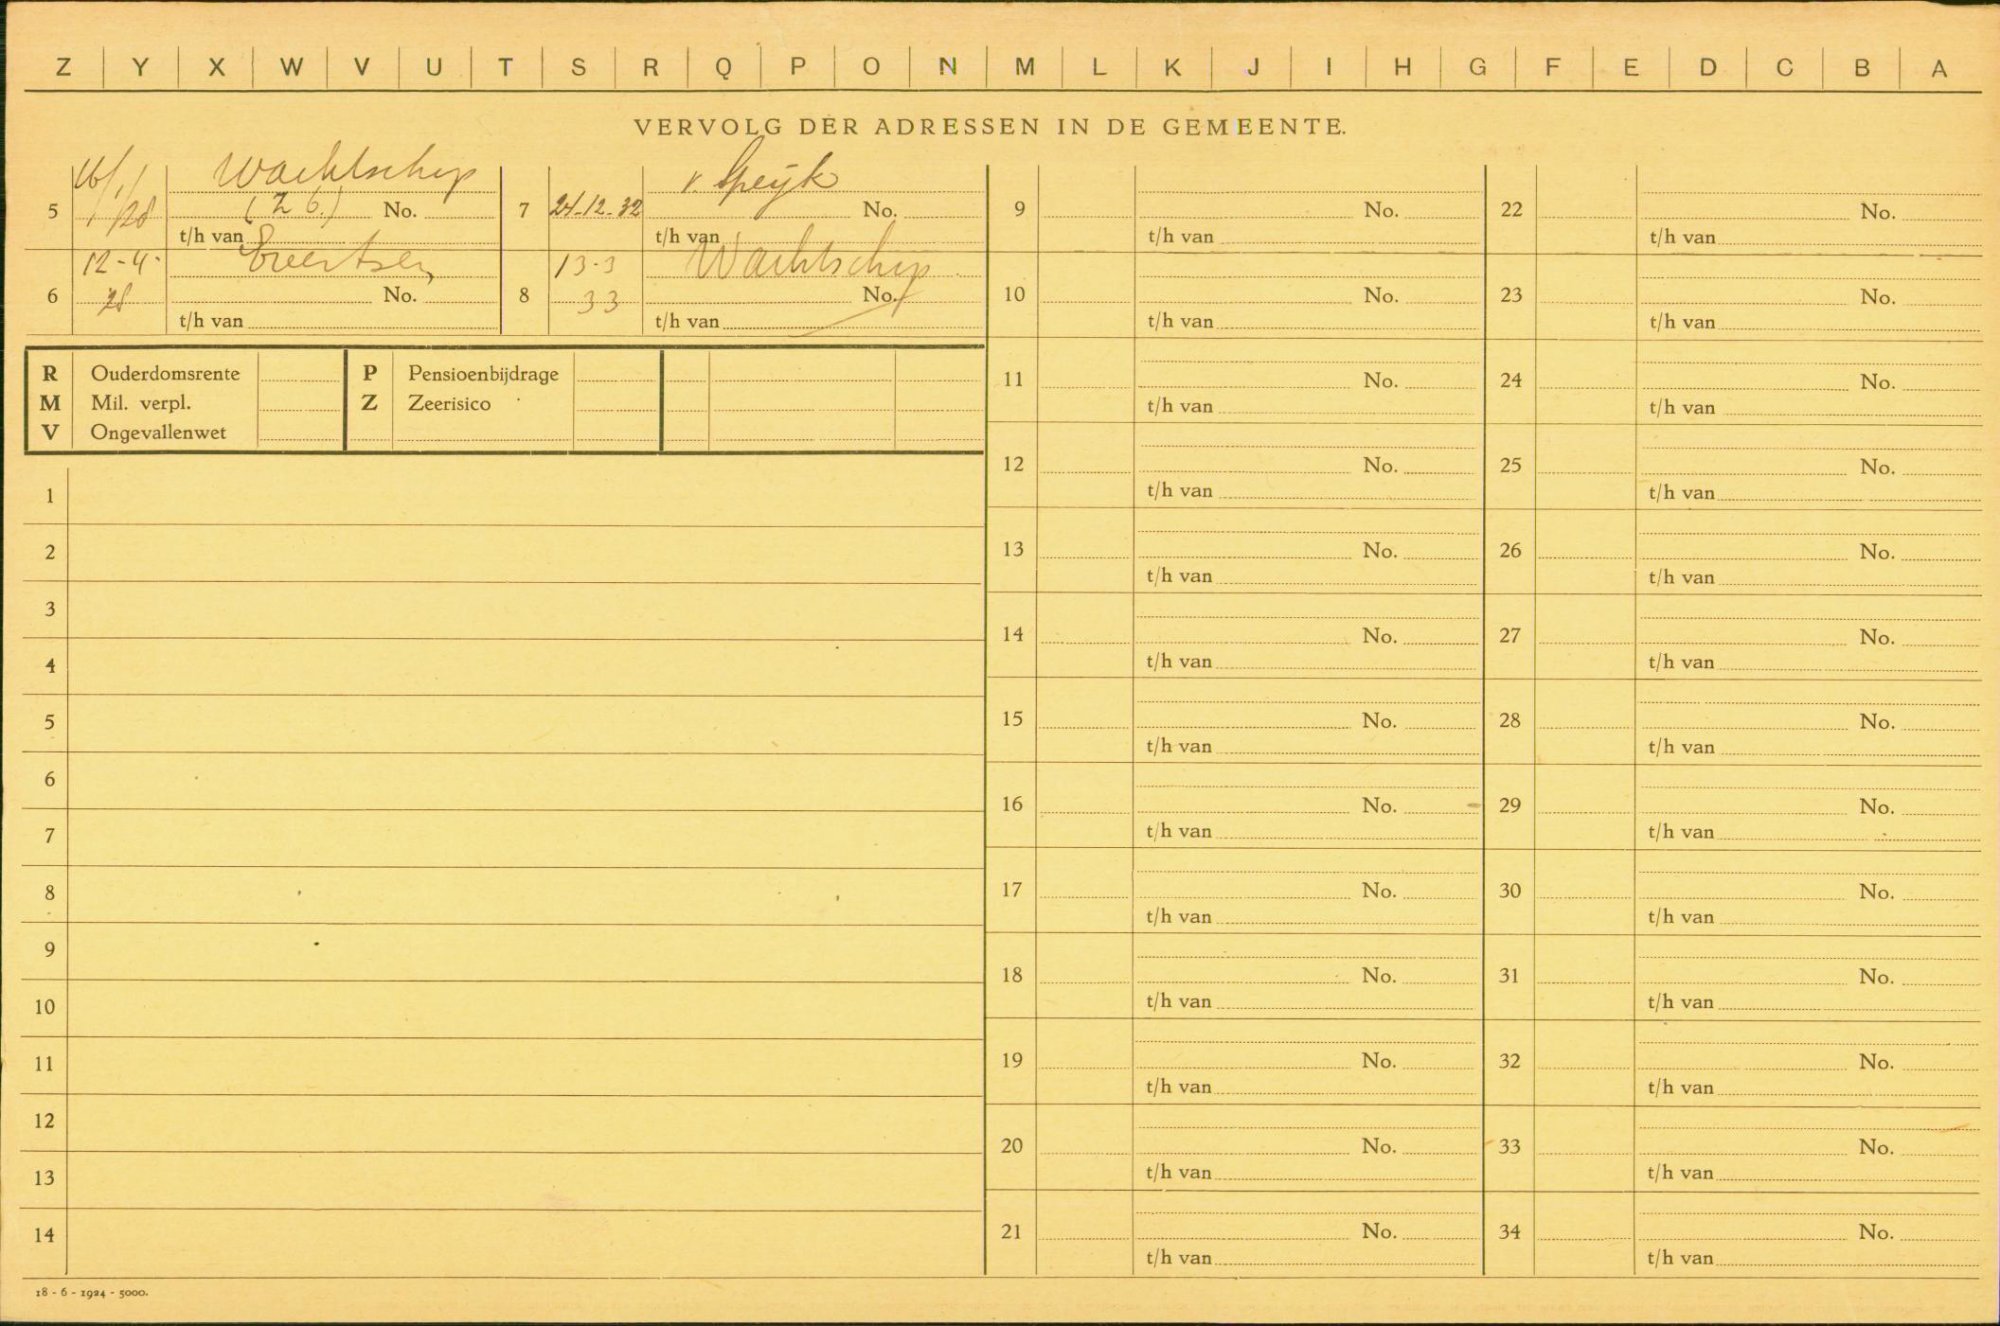 Z Y X W V U T S R Q P O N M L K J I H G F E D C B A
VERVOLG DER ADRESSEN IN DE GEMEENTE.
5 16/1/28 Wachtschip
(Z 6.) No.
t/h van
6 12-4-28 Evertsen
No.
t/h van
7 24-12-32 v. Speijk
No.
t/h van
8 13-3 33 Wachtschip
No.
t/h van
R Ouderdomsrente P Pensioenbijdrage
M Mil. verpl. Z Zeerisico
V Ongevallenwet
1
2
3
4
5
6
7
8
9
10
11
12
13
14
9 No.
t/h van
10 No.
t/h van
11 No.
t/h van
12 No.
t/h van
13 No.
t/h van
14 No.
t/h van
15 No.
t/h van
16 No.
t/h van
17 No.
t/h van
18 No.
t/h van
19 No.
t/h van
20 No.
t/h van
21 No.
t/h van
22 No.
t/h van
23 No.
t/h van
24 No.
t/h van
25 No.
t/h van
26 No.
t/h van
27 No.
t/h van
28 No.
t/h van
29 No.
t/h van
30 No.
t/h van
31 No.
t/h van
32 No.
t/h van
33 No.
t/h van
34 No.
t/h van
18 - 6 - 1924 - 5000.